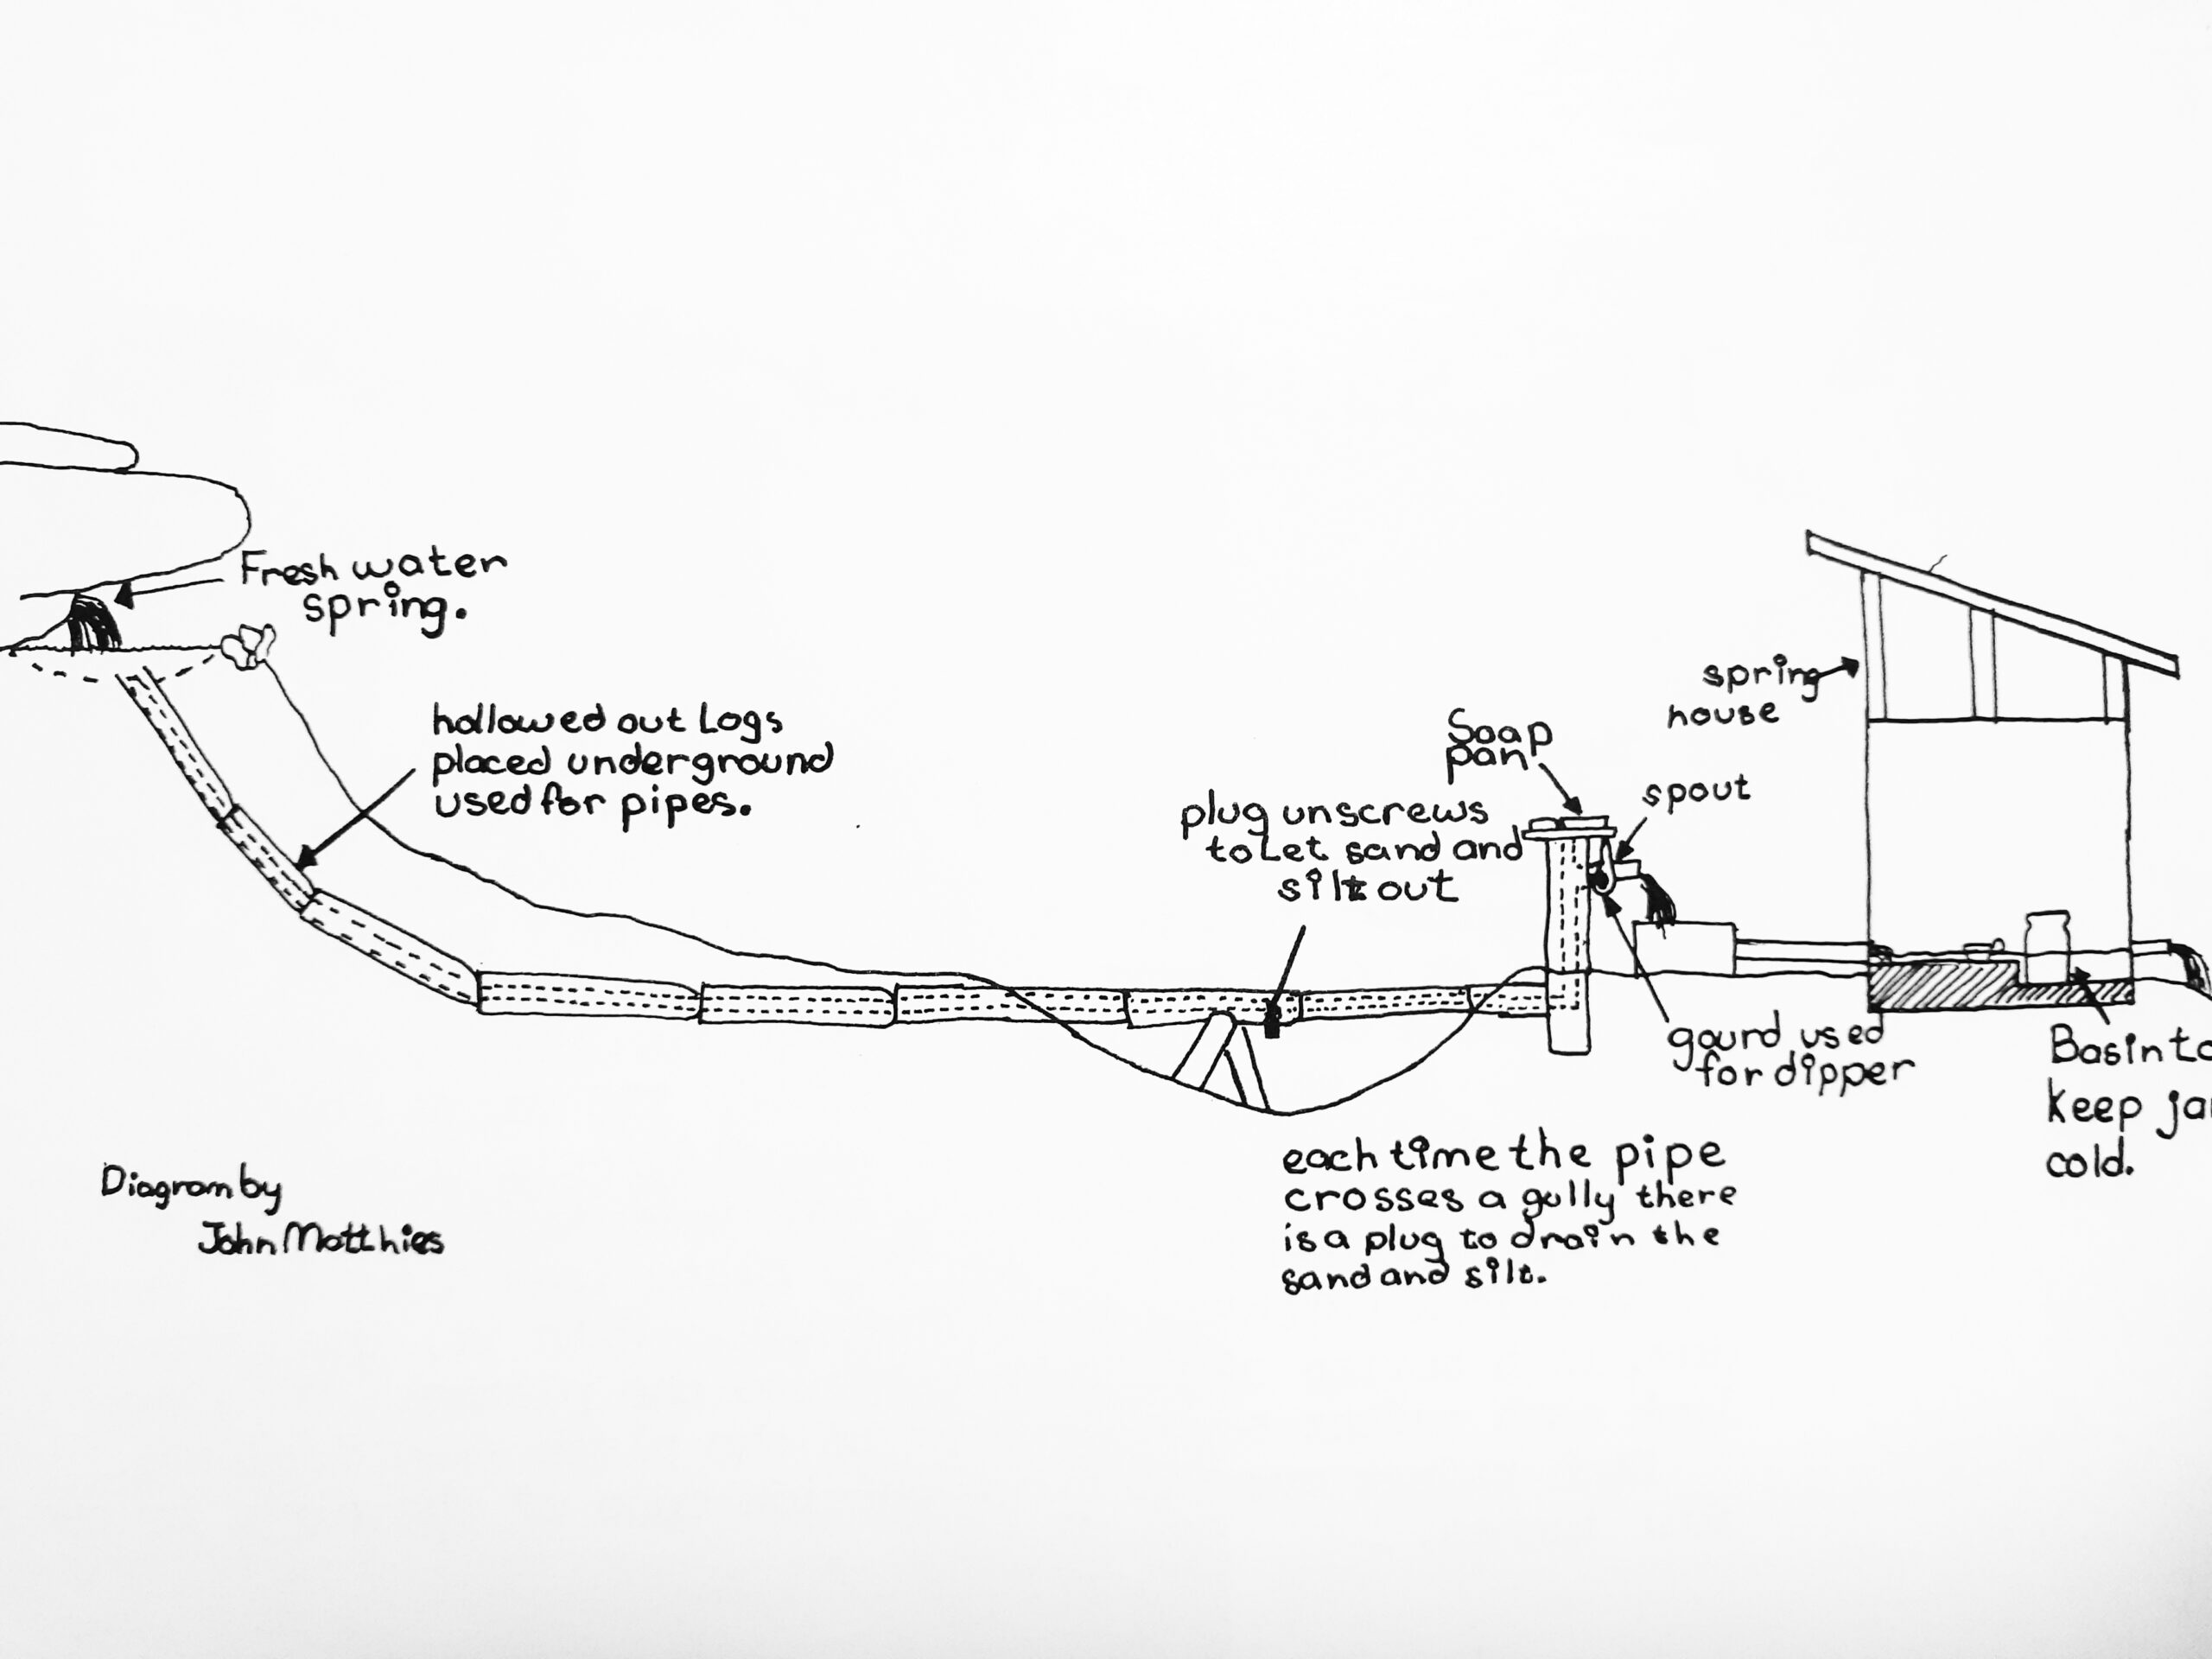 Fresh water
spring.
hollowed out Logs
placed underground
used for pipes.
plug unscrews
to Let sand and
silt out
Soap
pan
spout
spring
house
gourd used
for dipper
Basin to
keep
cold.
each time the pipe
crosses a gully there
is a plug to drain the
sand and silt.
Diagram by
John Matthies